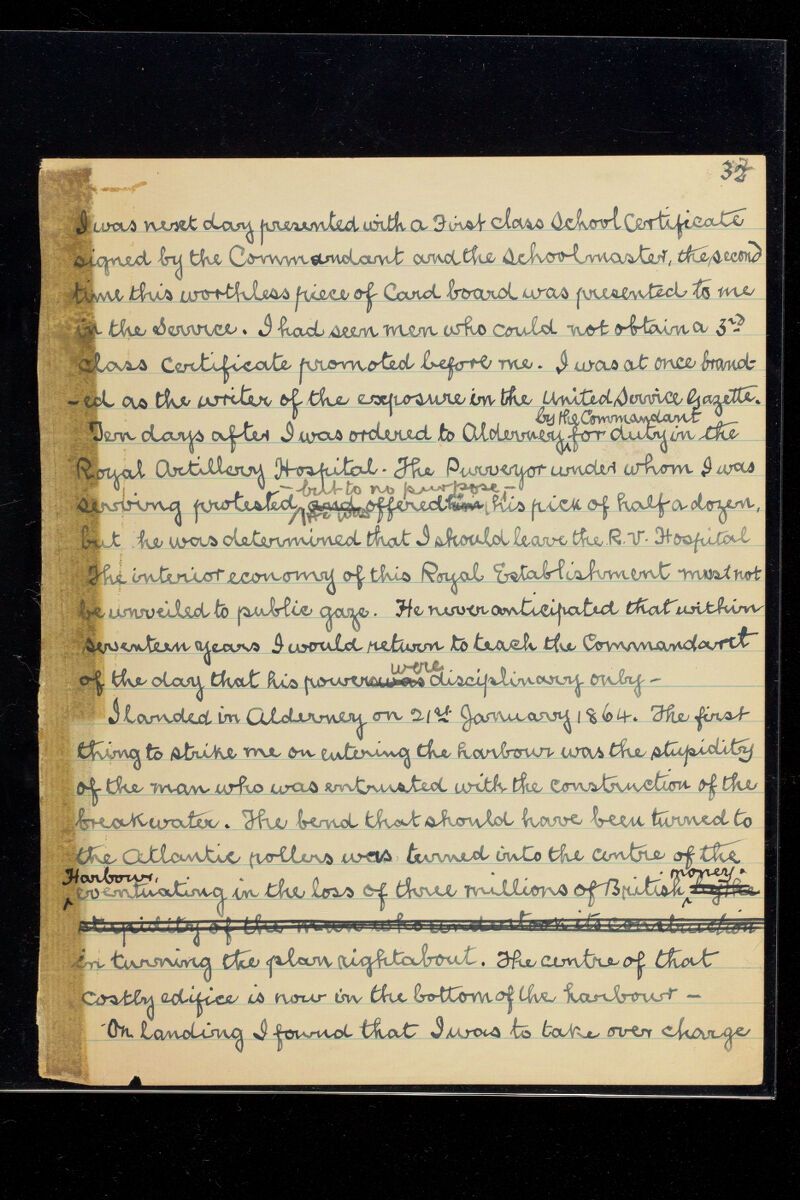 37
I was next day presented with a First class School Certificate
signed by the Commandant and the Schoolmaster, the second
time this worthless piece of Card board was presented to me
in the Service. I had seen men who could not obtain a 3rd
class Certificate promoted before me. I was at once brand-
-ed as the writer of the exposure in the United Service Gazette.
by the Commandant
Ten days after I was ordered to Alderney for duty in the
Royal Artillery Hospital. The Purveyor under whom I was
- but to no purpose -
serving protested, and offered him his pick of half a dozen,
He was
but he was determined that I should leave the R.V. Hospital
The interior economy of this Royal Establishment must not
be unveiled to public gaze. He never anticipated that within
seventeen years I would return to teach the Commandant
were
of the day that his powers was disciplinary only -
I landed in Alderney on 21st January 1864. The first
thing to strike me on entering the harbour was the stupidity
of the man who was entrusted with the construction of the
breakwater. The bend that should have been turned to
the Atlantic rollers was turned into the centre of the
Harbour, money.
eventuating in the loss of three millions of British by the
stupidity of the man who undertook its construction
in turning the plan rightabout. The centre of that
costly edifice is now in the bottom of the harbour -
On landing I found that I was to take over charge